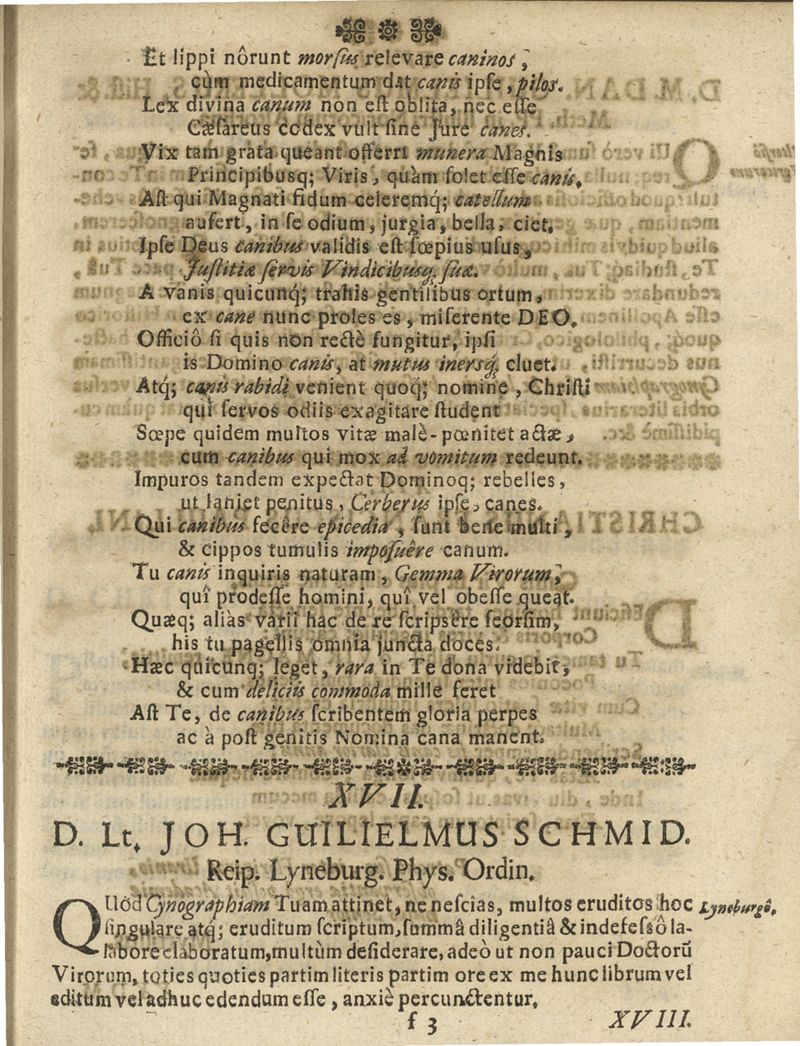 Et lippi nôrunt morſus relevare caninos,
cùm medicamentum dat canis ipſe, pilos.
Lex divina canum non eſt oblita, nec eſſe
Cæſareus codex vult ſine Jure canes.
Vix tam grata queant offerri munera Magnis
Principibusq; Viris, quàm ſolet eſſe canis.
Aſt qui Magnati fidum celeremq́; catellum
aufert, in ſe odium, jurgia, bella, ciet.
Ipſe Deus canibus validis eſt ſœpius uſus,
Juſtitiæ ſervis Vindicibusq́, ſuæ.
A vanis quicunq́; trahis gentilibus ortum,
ex cane nunc proles es, miſerente DEO.
Officiô ſi quis non rectè fungitur, ipſi
is Domino canis, at mutus inersq́, cluet.
Atq́; canis rabidi venient quoq́; nomine, Chriſti
qui ſervos odiis exagitare ſtudent
Sœpe quidem multos vitæ malè-pœnitet actæ,
cum canibus qui mox ad vomitum redeunt.
Impuros tandem expectat Dominoq; rebelles,
ut laniet penitus, Cerberus ipſe, canes.
Qui canibus fecêre epicedia, ſunt bene multi,
& cippos tumulis impoſuêre canum.
Tu canis inquiris naturam, Gemma Virorum,
quî prodeſſe homini, quî vel obeſſe queat.
Quæq; aliàs varii hac de re ſcripsêre ſeorſim,
his tu pagellis omnia juncta doces.
Hæc quicunq; leget, rara in Te dona videbit,
& cum deliciis commoda mille feret
Aſt Te, de canibus ſcribentem gloria perpes
ac à poſt genitis Nomina cana manent.
XVII.
D. Lt. JOH. GUILIELMUS SCHMID.
Reip. Lyneburg. Phys. Ordin.
QUôd Cynographiam Tuam attinet, ne neſcias, multos eruditos hoc Lyneburgô.
ſingulare atq́; eruditum ſcriptum, ſummâ diligentiâ & indefeſſô la-
labore elaboratum, multùm deſiderare, adeò ut non pauci Doctorũ
Virorum, toties quoties partim literis partim ore ex me hunc librum vel
editum vel adhuc edendum eſſe, anxiè percunctentur.
f 3 XVIII.